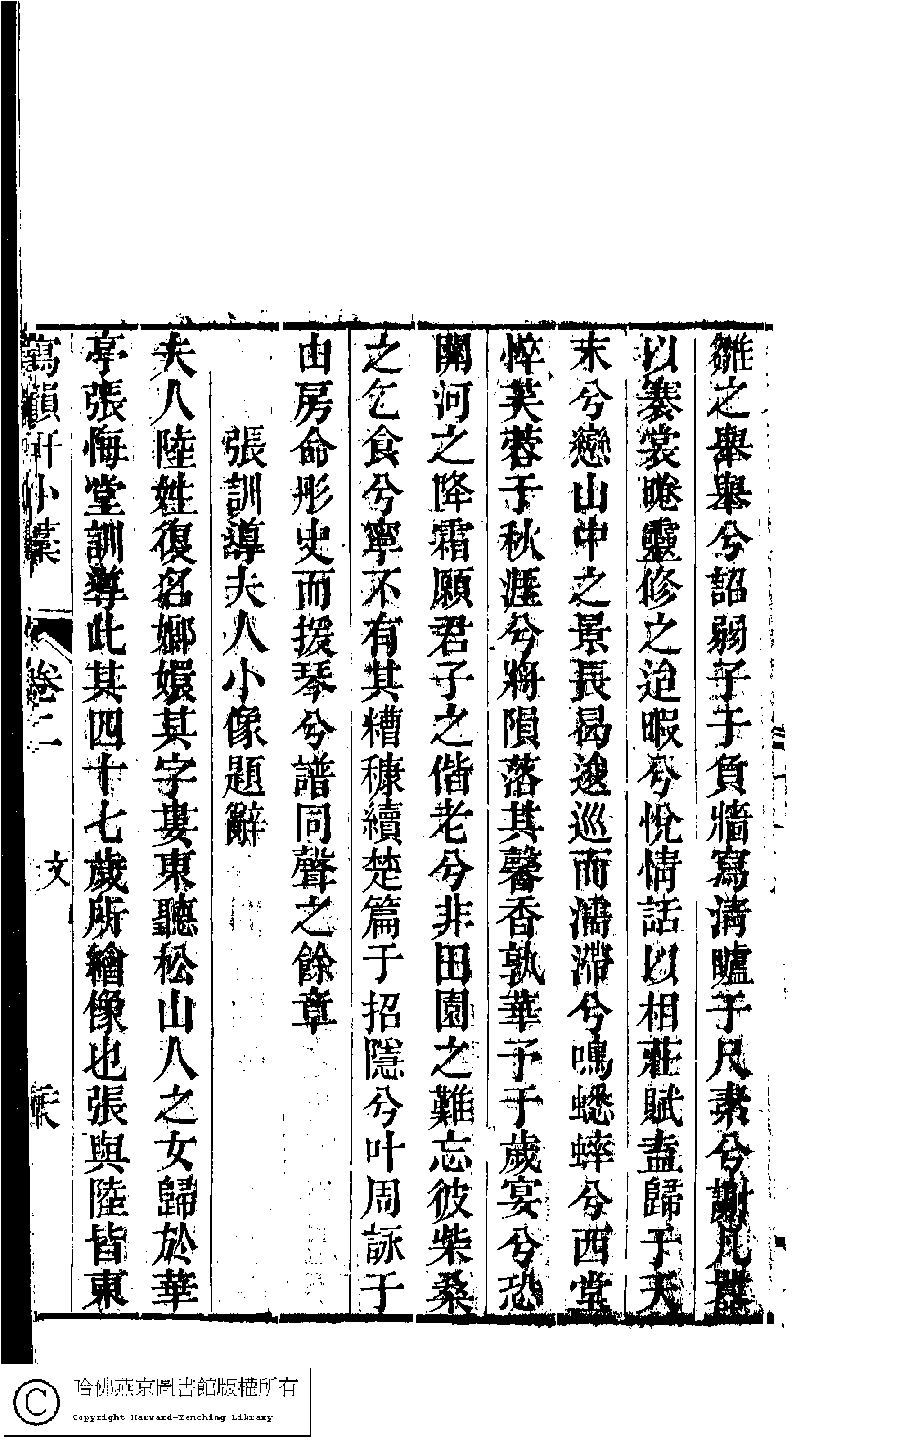 雛之舉舉兮詔弱子于負牆寫清矑于尺素兮謝凡囂
以褰裳睠靈修之迨暇兮悅情話以相莊賦盍歸于天
末兮戀山中之景長曷逡巡而瀳滯兮鳴蟋蟀兮西堂
悴芙蓉于秋涯兮將隕落其馨香孰華予于歲宴兮恐
關河之降霜願君子之偕老兮非田園之難忘彼柴桑
之乞食兮寧不有其糟糠續楚篇于招隱兮叶周詠于
由房命彤史而援琴兮譜同聲之餘章
張訓導夫人小像題辭
夫人陸姓復名嫏嬛其字婁東聽松山人之女歸於華
亭張悔堂訓導此其四十七歲所繪像也張與陸皆東
寫韻軒小藁 卷二 文
哈佛燕京圖書館版權所有
Copyright Harvard-Yenching Library